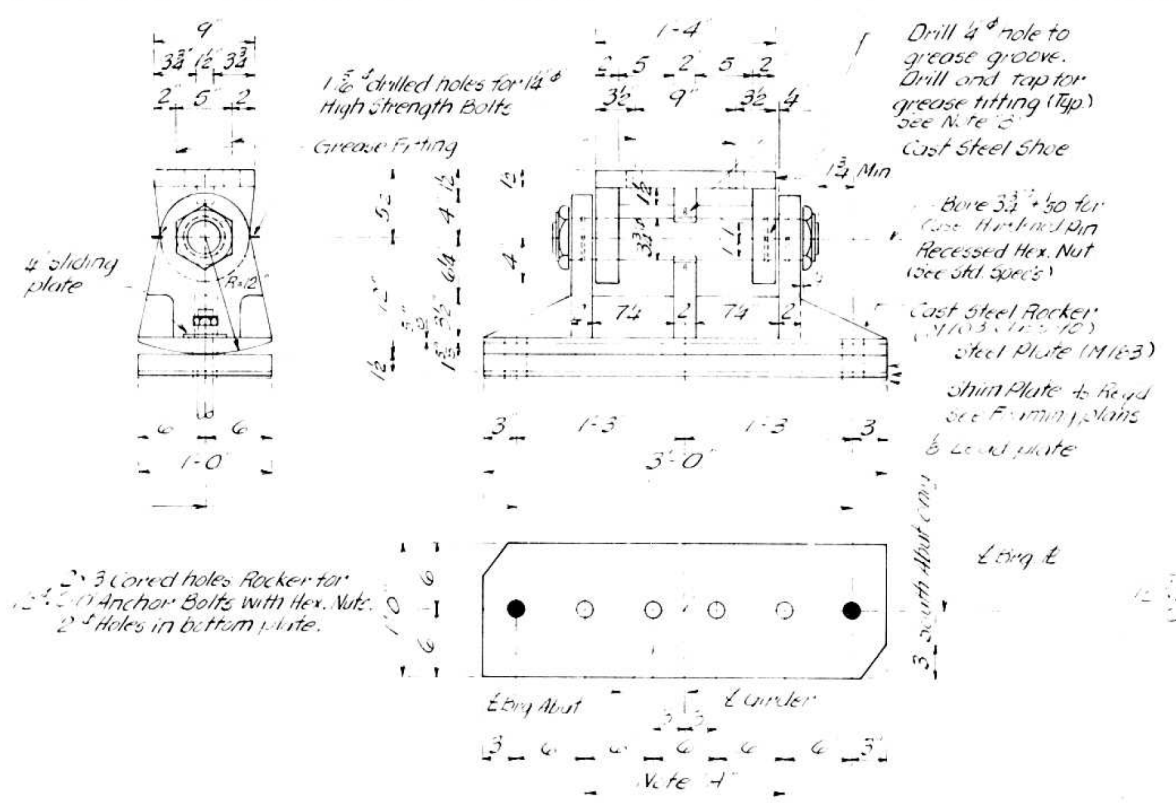 9"
3¾" 1½" 3¾"
2" 5" 2"
1 5/16"ᶲ drilled holes for 1¼"ᶲ
High Strength Bolts
Grease Fitting
¼" sliding
plate
R=12"
5½
12"
1½
1½
4
6¼
3½"
6 6
1'-0"
1'-4"
2 5 2" 5 2
3½ 9" 3½ ¼
1½
4
1½
3¾"
7¼ 2 7¼ 2
Drill ¼"ᶲ hole to
grease groove.
Drill and tap for
grease fitting (Typ.)
See Note "B"
Cast Steel Shoe
1¾ Min
Bore 3¾" + 1/50 for
Case Hardened Pin
Recessed Hex. Nut
(See Std. Spec's)
Cast Steel Rocker
Steel Plate (M183)
Shim Plate As Reqd
See Framing plans
⅛" Lead plate
3" 1'-3 1'-3 3
3'-0"
2- 3 Cored holes Rocker for
Anchor Bolts with Hex. Nuts.
2"ᶲ Holes in bottom plate.
1'-0"
6
6
South Abut only
3
℄ Brg ℄
℄ Brg Abut
℄ Girder
3 3
3 6 6 6 6 6 3"
Note "A"